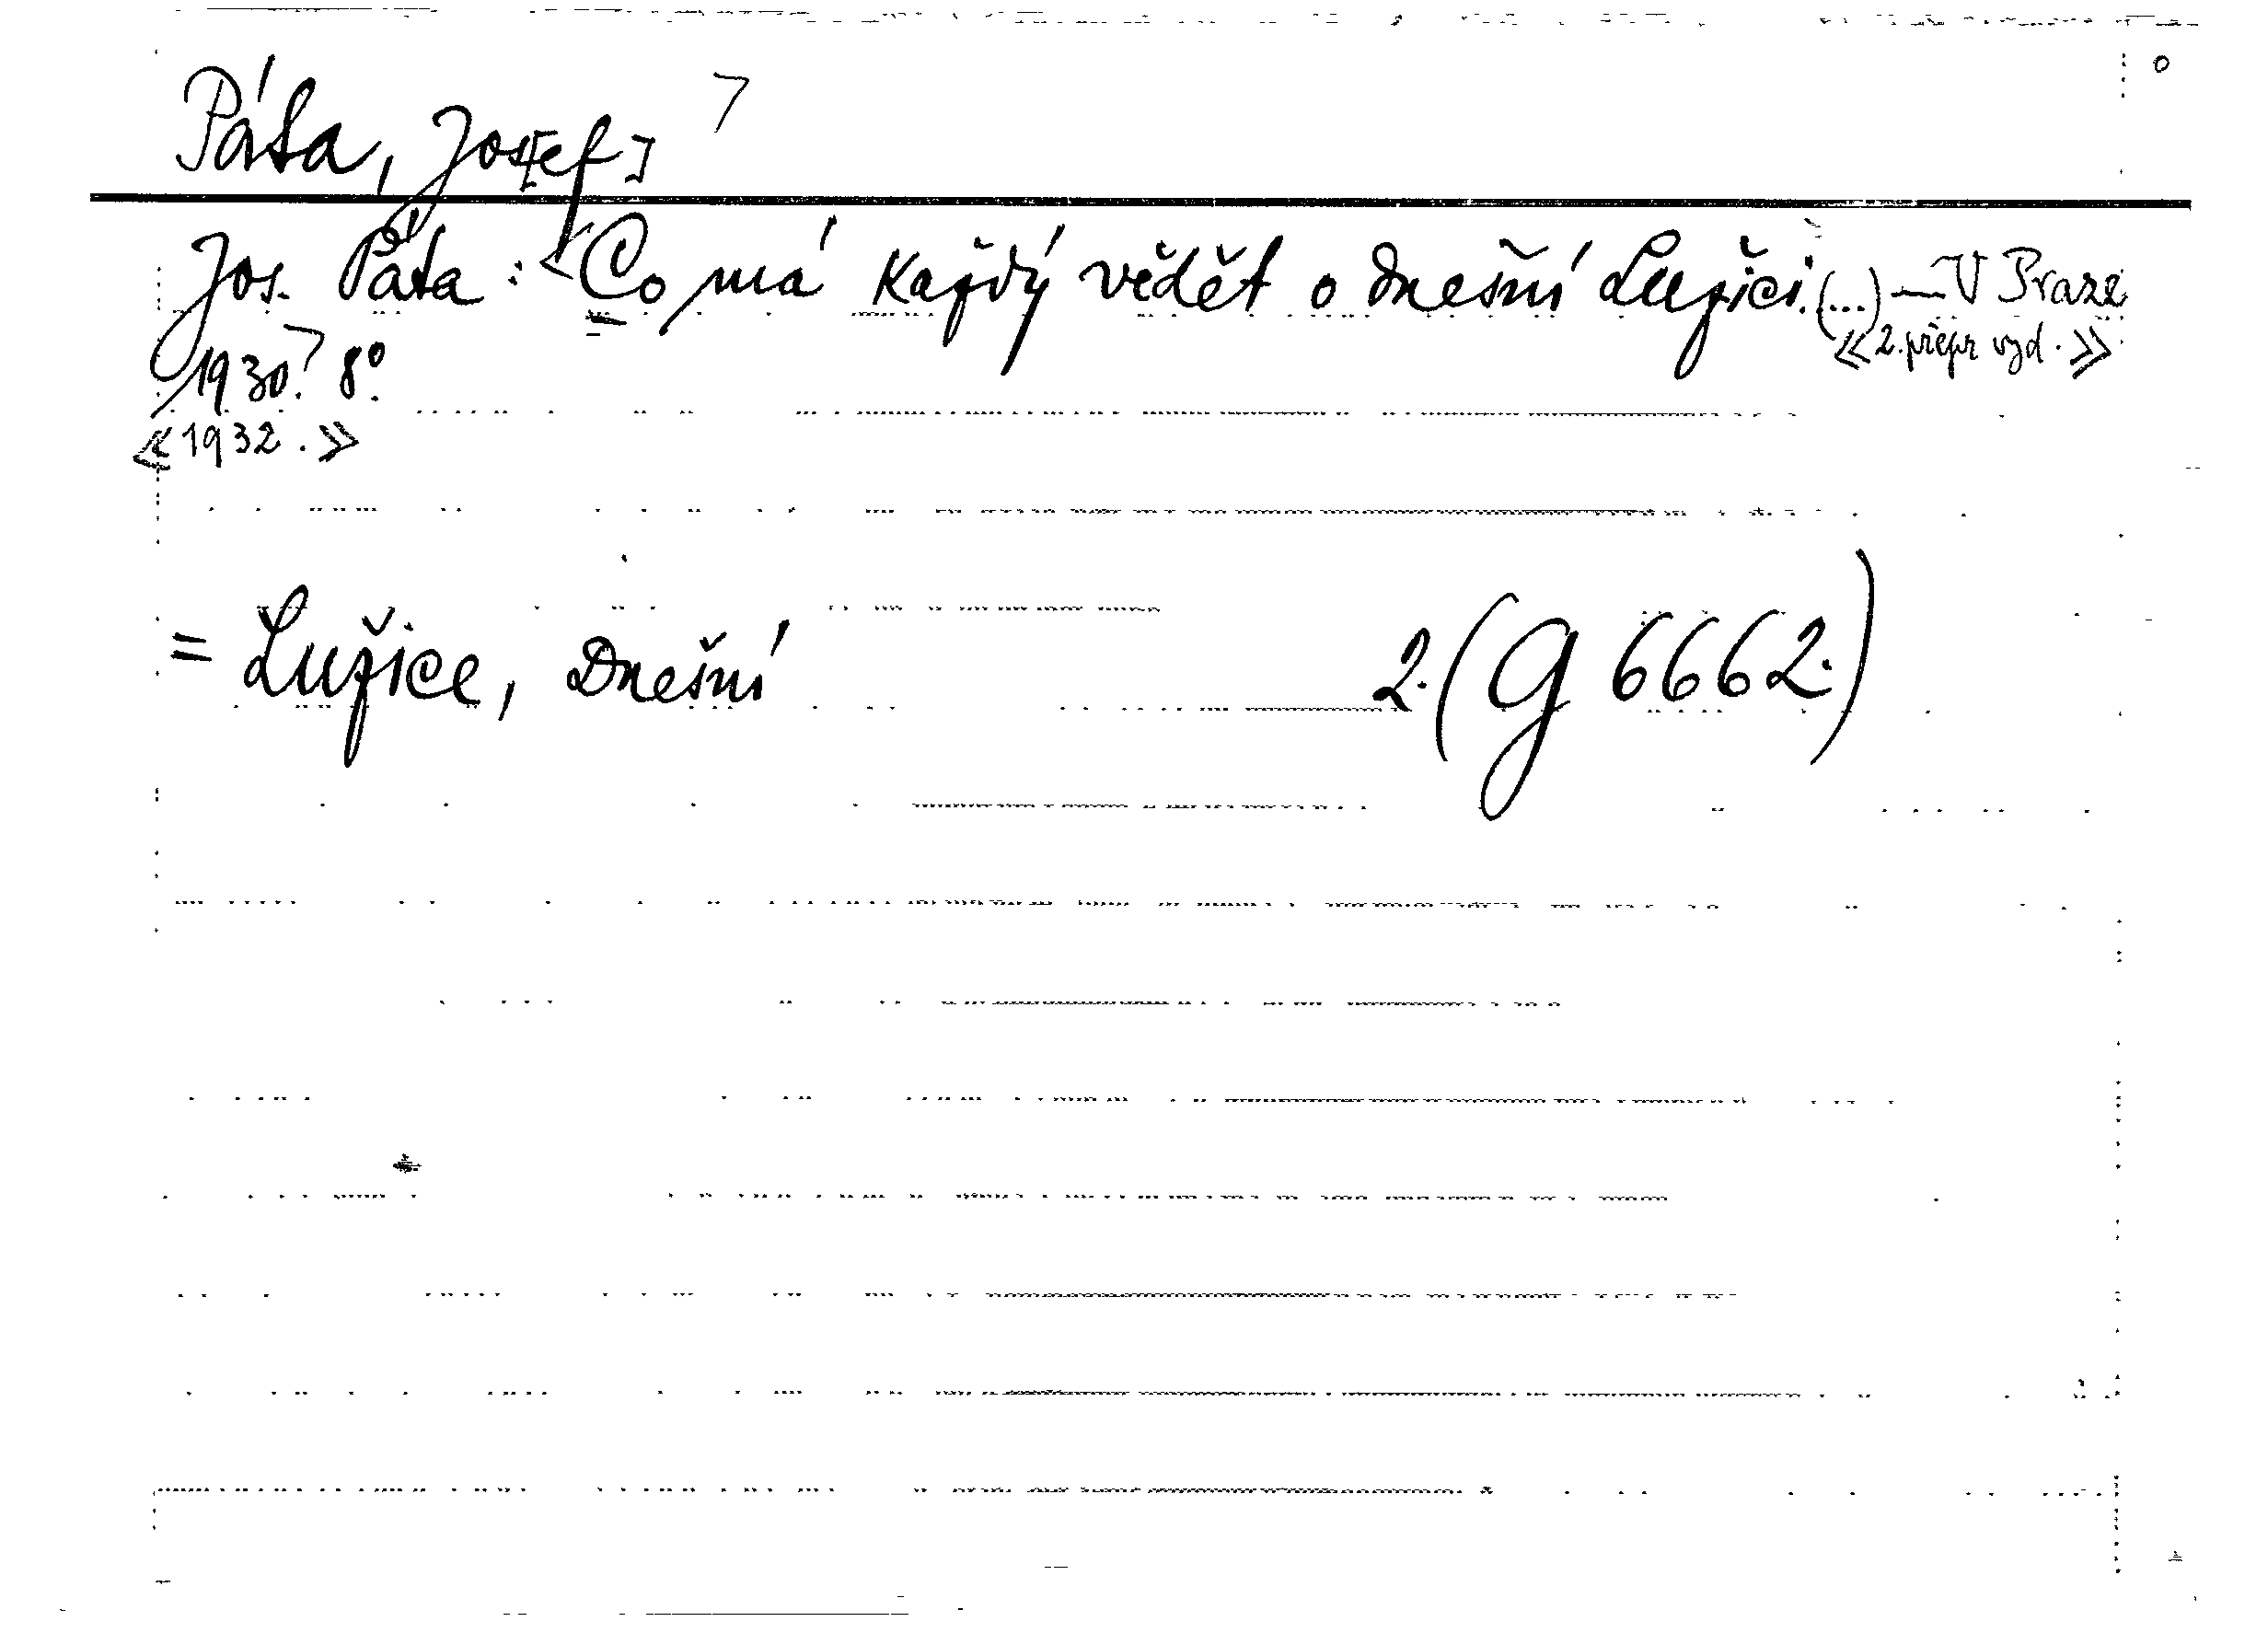 Páta, Jos[ef]
Jos. Páta: <Co má každý vědět o dnešní Lužici.(...) — V Praze
«2. přepr vyd.»
1930. 8°.
«1932.»
= Lužice, Dnešní 2.(G 6662.)